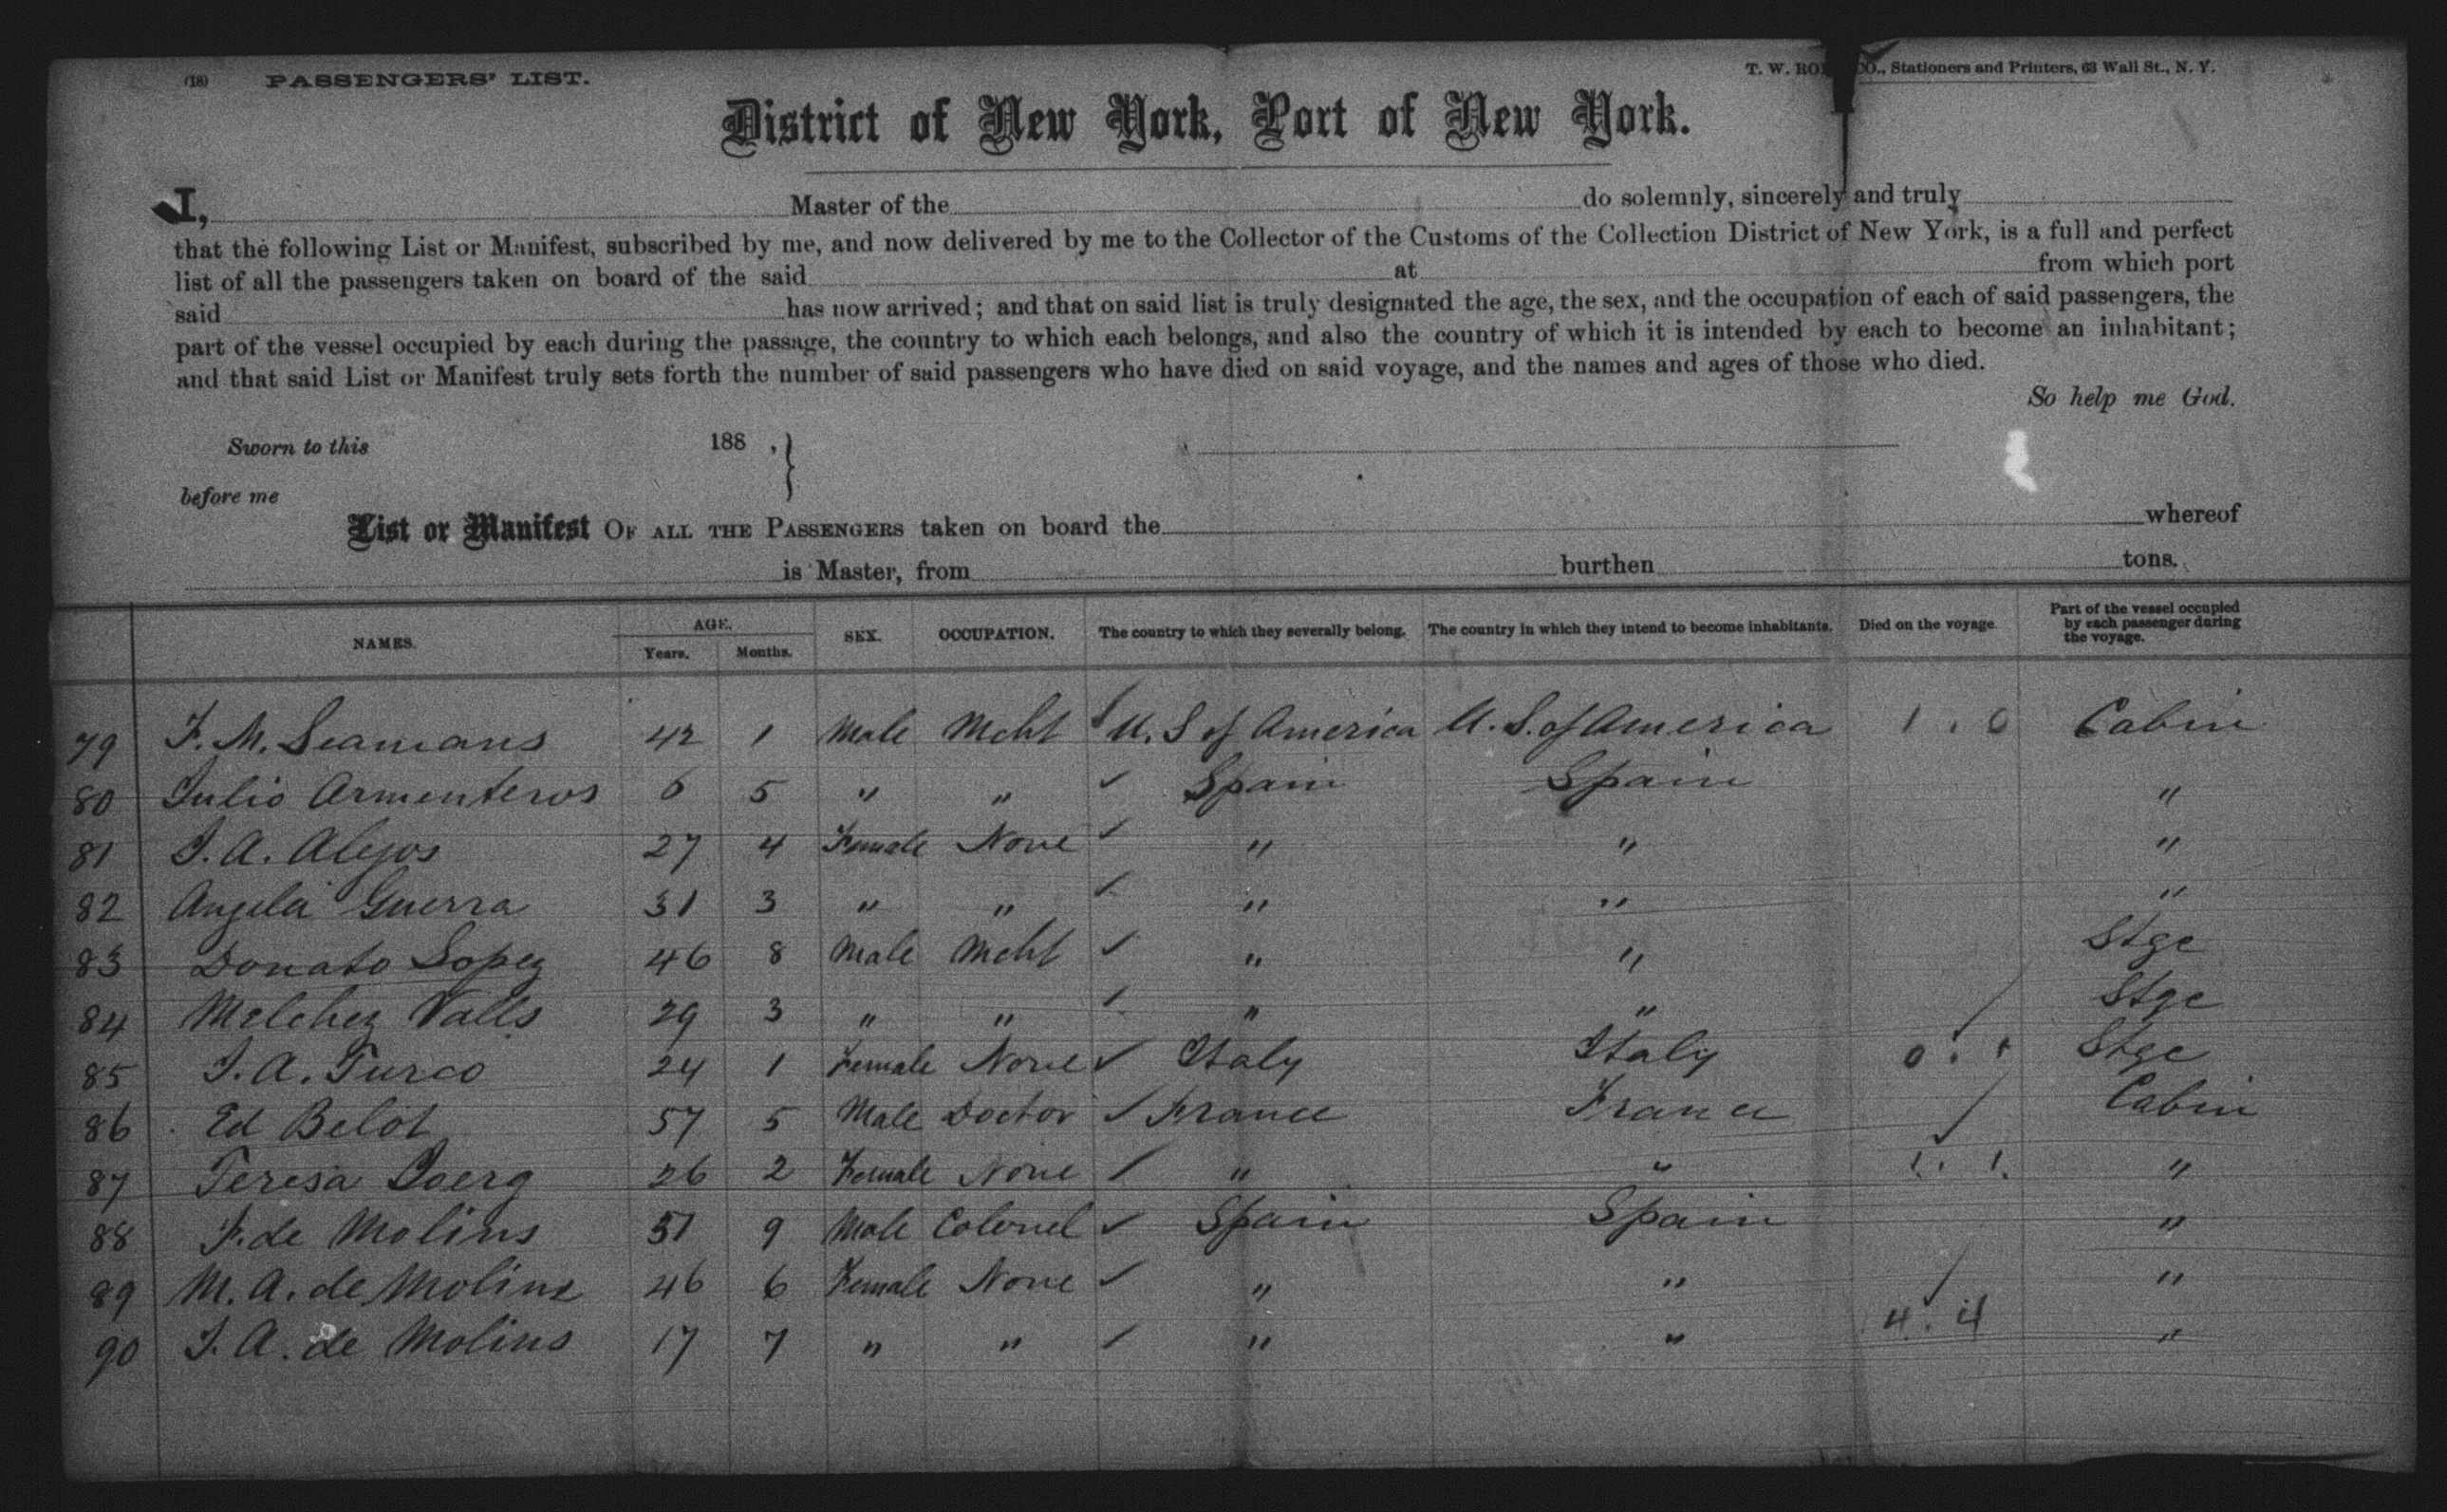 (18) PASSENGERS' LIST.
T. W. CO., Stationers and Printers, 63 Wall St., N. Y.
District of New York, Port of New York.
I, Master of the do solemnly, sincerely and truly
that the following List or Manifest, subscribed by me, and now delivered by me to the Collector of the Customs of the Collection District of New York, is a full and perfect
list of all the passengers taken on board of the said at from which port
said has now arrived; and that on said list is truly designated the age, the sex, and the occupation of each of said passengers, the
part of the vessel occupied by each during the passage, the country to which each belongs, and also the country of which it is intended by each to become an inhabitant;
and that said List or Manifest truly sets forth the number of said passengers who have died on said voyage, and the names and ages of those who died.
So help me God.
Sworn to this 188 , }
before me
List or Manifest OF ALL THE PASSENGERS taken on board the whereof
is Master, from burthen tons.
NAMES. AGE. Years. Months. SEX. OCCUPATION. The country to which they severally belong. The country in which they intend to become inhabitants. Died on the voyage. Part of the vessel occupied by each passenger during the voyage.
79 F. M. Seamans 42 1 Male Mcht U. S of America U. S. of America 1 . 0 Cabin
80 Julio Armenteros 6 5 " " ✓ Spain Spain "
81 J. A. Alejos 27 4 Female None ✓ " " "
82 Angela Guerra 31 3 " " ✓ " " "
83 Donato Lopez 46 8 Male Mcht ✓ " " Stge
84 Melchez Valls 29 3 " " ✓ " " Stge
85 J. A. Turco 24 1 Female None ✓ Italy Italy 0 . 1 Stge
86 Ed Belot 57 5 Male Doctor ✓ France France Cabin
87 Teresa 26 2 Female None ✓ " " 1. 1. "
88 F. de Molins 51 9 Male Colonel ✓ Spain Spain "
89 M. A. de Molins 46 6 Female None ✓ " " "
90 J. A. de Molins 17 7 " " ✓ " " 4. 4 "